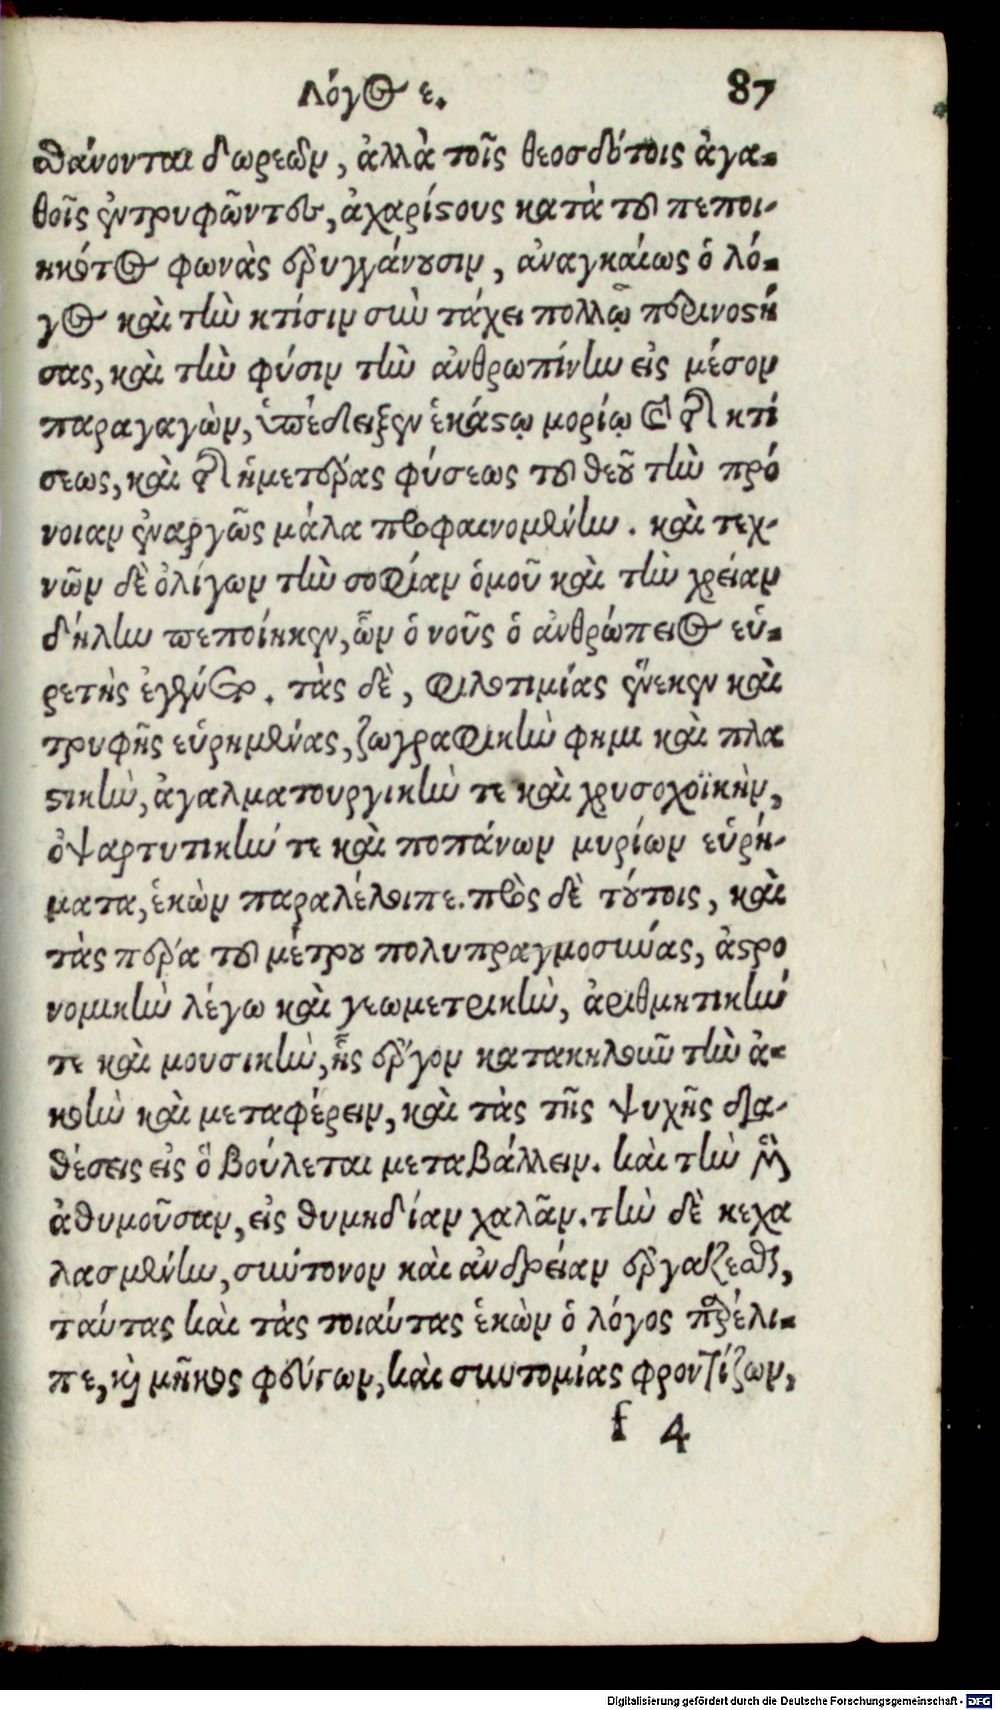 Λόγος ε. 87
θάνονται δωρεῶν, ἀλλὰ τοῖς θεοσδότοις ἀγα-
θοῖς ἐντρυφῶντες, ἀχαρίστους κατὰ τοῦ πεποι-
ηκότος φωνὰς ἐρυγγάνουσιν, ἀναγκαίως ὁ λό-
γος καὶ τὴν κτίσιν σὺν τάχει πολλῷ περινοστή
σας, καὶ τὴν φύσιν τὴν ἀνθρωπίνην εἰς μέσον
παραγαγὼν, ὑπέδειξεν ἑκάστῳ μορίῳ καὶ τῆς κτί
σεως, καὶ τῆς ἡμετέρας φύσεως τοῦ θεοῦ τὴν πρό
νοιαν ἐναργῶς μάλα προφαινομένην. καὶ τεχ-
νῶν δὲ ὀλίγων τὴν σοφίαν ὁμοῦ καὶ τὴν χρείαν
δήλην πεποίηκεν, ὧν ὁ νοῦς ὁ ἀνθρώπειος εὑ-
ρετὴς ἐγένετο. τὰς δὲ, φιλοτιμίας ἕνεκεν καὶ
τρυφῆς εὑρημένας, ζωγραφικὴν φημι καὶ πλα
στικὴν, ἀγαλματουργικὴν τε καὶ χρυσοχοϊκὴν,
ὀψαρτυτικήν τε καὶ ποπάνων μυρίων εὑρή-
ματα, ἑκὼν παραλέλοιπε. πρὸς δὲ τούτοις, καὶ
τὰς περὶ τὰ τοῦ μέτρου πολυπραγμοσύνας, ἀστρο
νομικὴν λέγω καὶ γεωμετρικὴν, ἀριθμητικήν
τε καὶ μουσικὴν, ἧς ἔργον κατακηλεῖν τὴν ἀ-
κοὴν καὶ μεταφέρειν, καὶ τὰς τῆς ψυχῆς δια-
θέσεις εἰς ὃ βούλεται μεταβάλλειν. καὶ τὴν μὲν
ἀθυμοῦσαν, εἰς θυμηδίαν χαλᾶν. τὴν δὲ κεχα
λασμένην, σύντονον καὶ ἀνδρείαν ἐργάζεσθαι,
ταύτας καὶ τὰς τοιαύτας ἑκὼν ὁ λόγος παρέλι-
πε, καὶ μῆκος φεύγων, καὶ συντομίας φροντίζων,
f 4
Digitalisierung gefördert durch die Deutsche Forschungsgemeinschaft - DFG